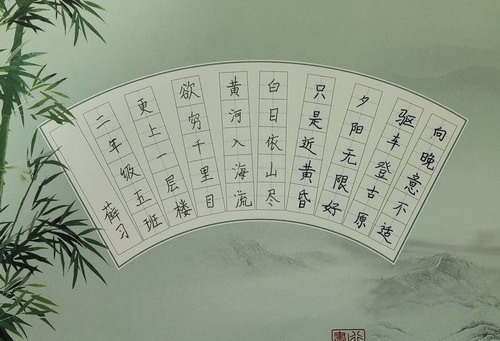 向晚意不适
驱车登古原
夕阳无限好
只是近黄昏
白日依山尽
黄河入海流
欲穷千里目
更上一层楼
二年级五班